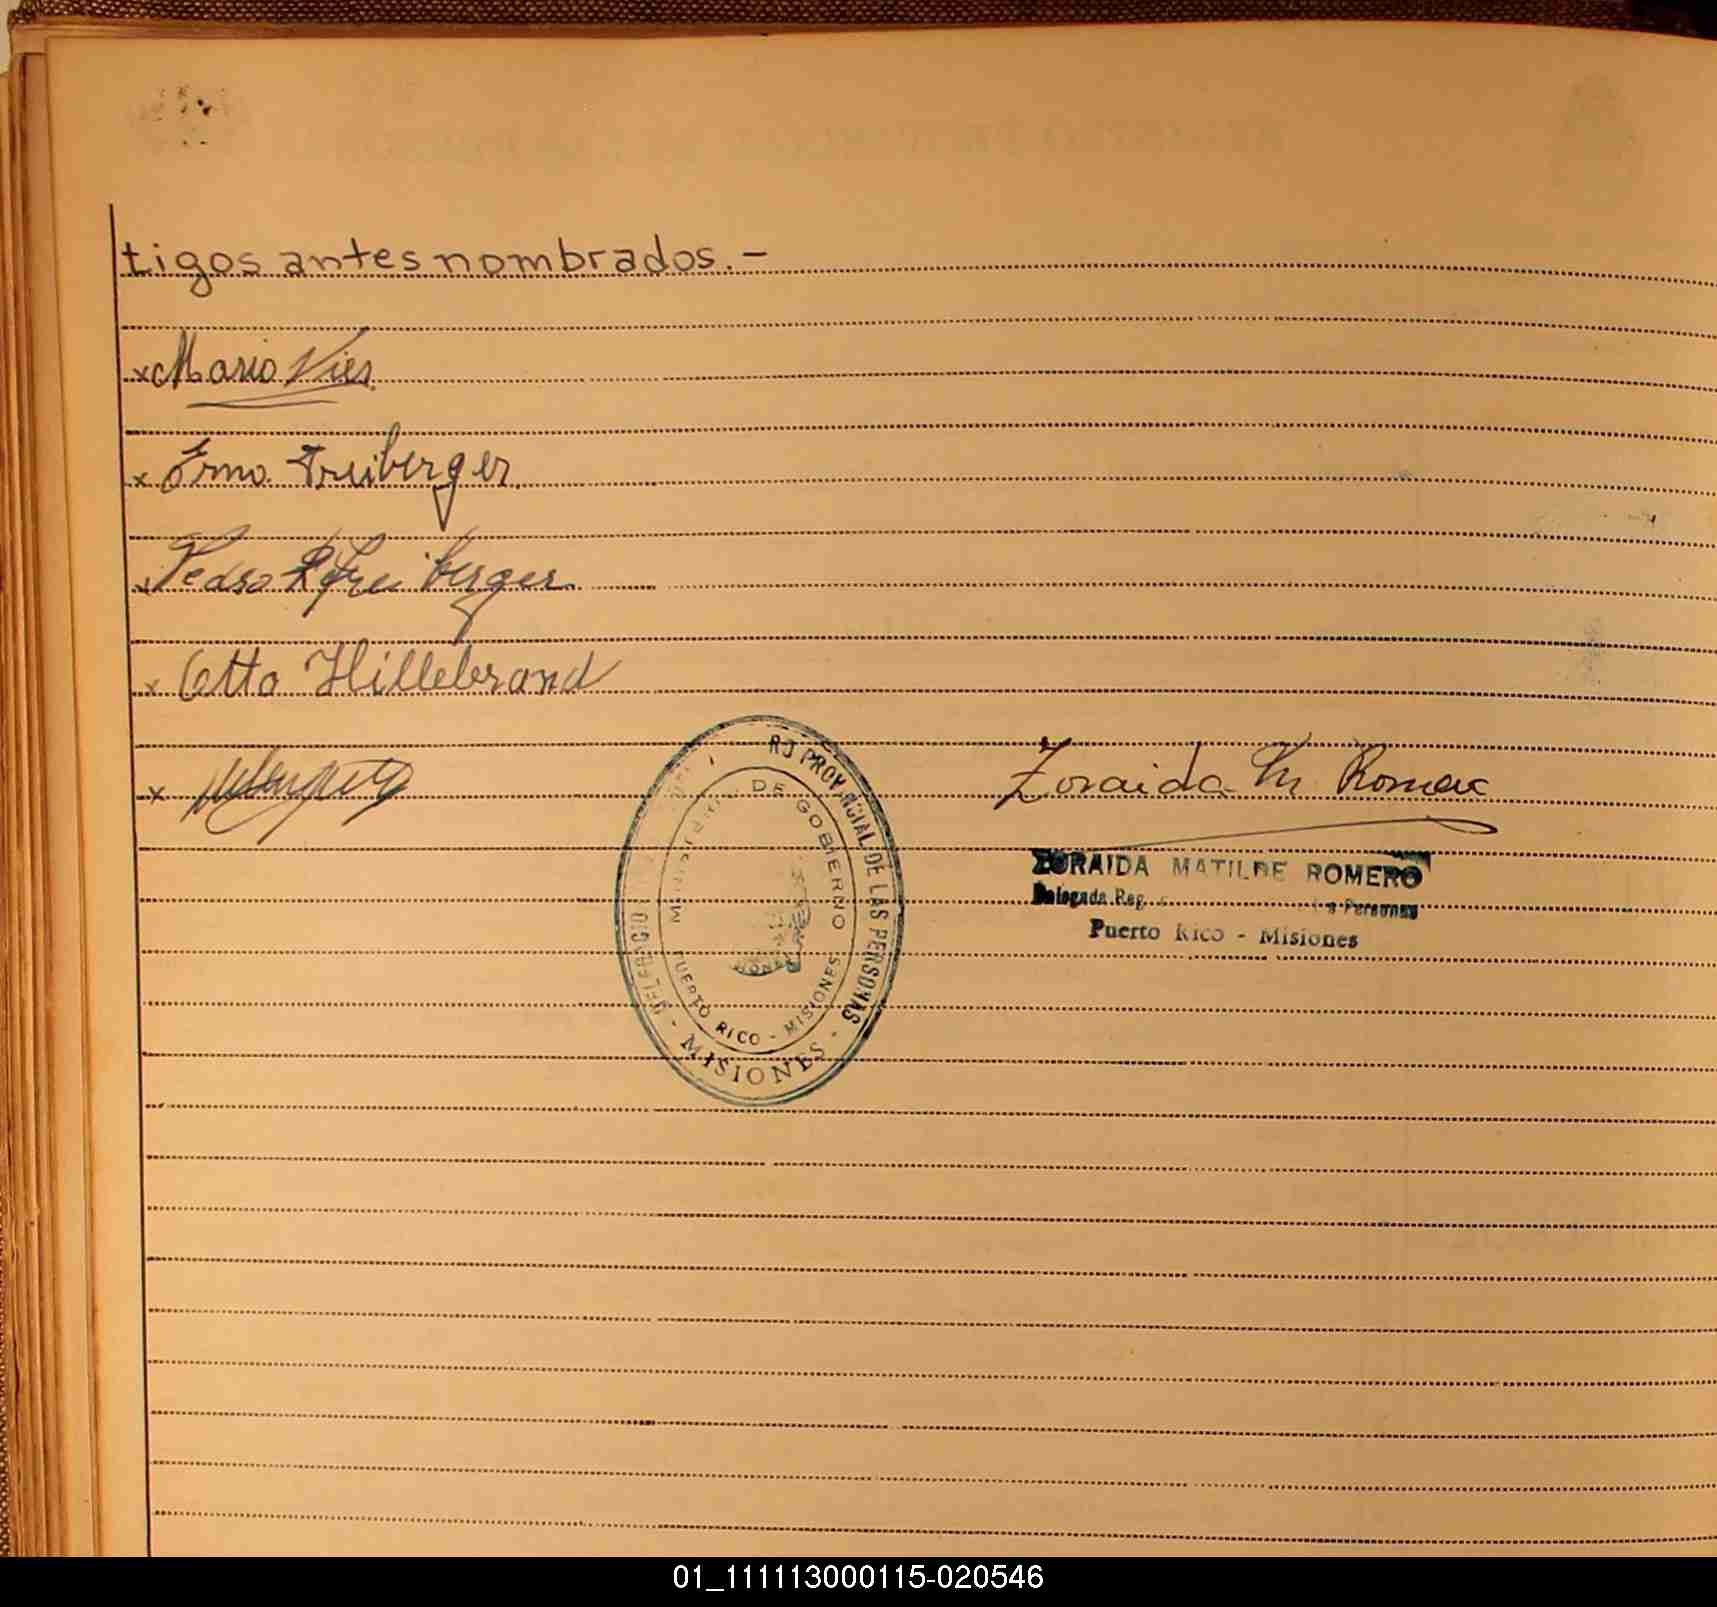 tigos antes nombrados.-
x Mario Vier
x Erno. Freiberger.
x Pedro R Freiberger.
x Otto Hillebrand
x
Zoraida M. Romero
ZORAIDA MATILDE ROMERO
Delegada Reg. Personas
Puerto Rico - Misiones
PROVINCIAL DE LAS PERSONAS
- MISIONES -
DE GOBIERNO
PUERTO RICO - MISIONES
01_111113000115-020546